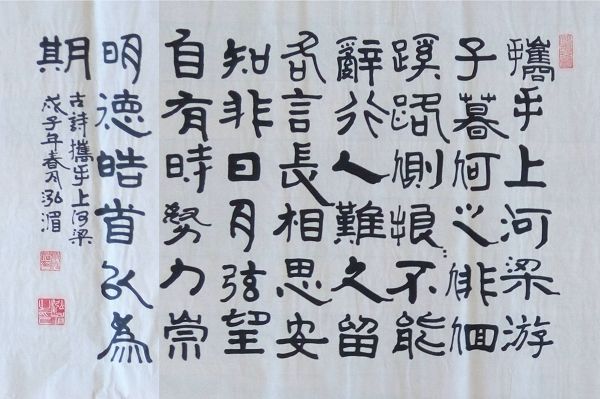 攜手上河梁游
子暮何之徘徊
蹊路側悢〻不能
辭行人難久留
各言長相思安
知非日月弦望
自有時努力崇
明德皓首以為
期
古詩攜手上河梁
戊子年春月泓湄